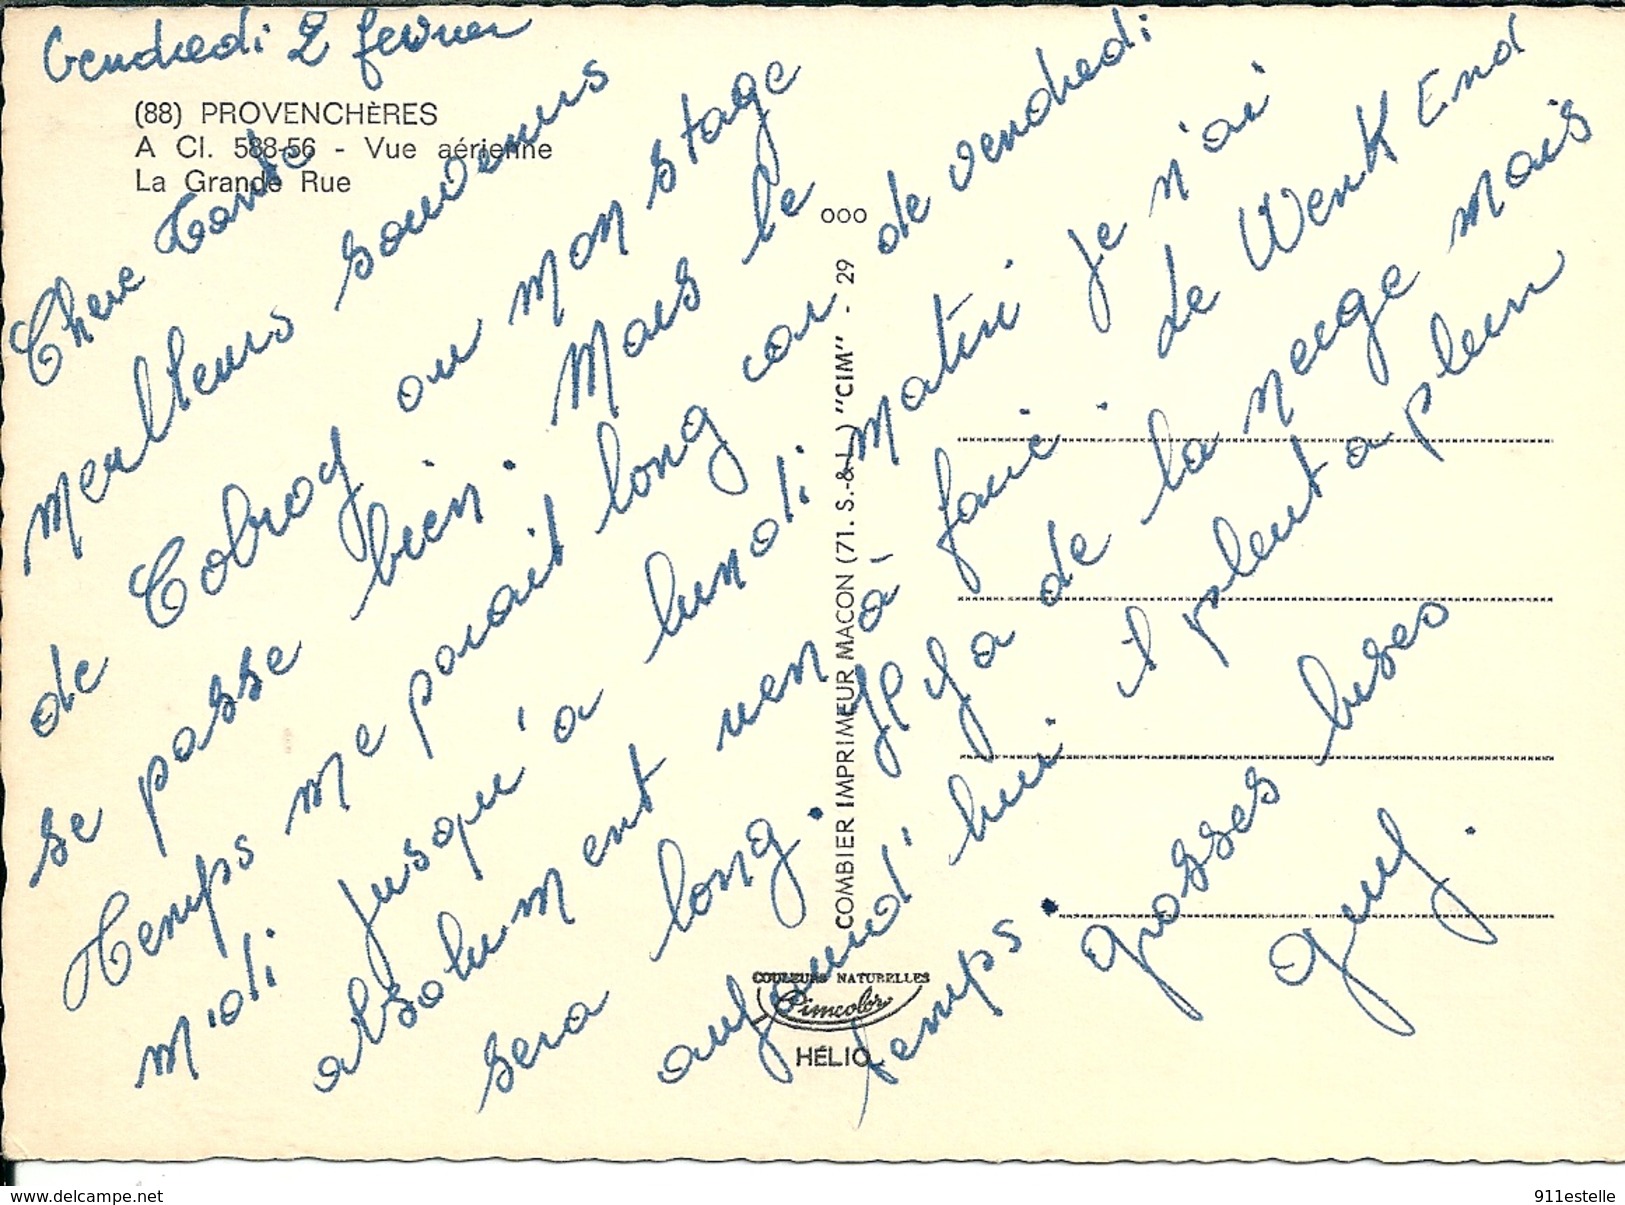 Vendredi 2 fevrier
(88) PROVENCHÈRES
A CI. 588-56 - Vue aérienne
La Grande Rue
Chere Tante
meilleurs souvenirs
de Colroy ou mon stage
se passe bien. Mais le
temps me parait long car de vendredi
midi jusqu'a lundi matin je n'ai
absolument rien à faire. Le Wenk End
sera long. Il y a de la neige mais
aujourd'hui il pleut a plein
temps. grosses bises
Guy.
ooo
COMBIER IMPRIMEUR MACON (71. S.-&-L.) "CIM" - 29
COULEURS NATURELLES
Cimcolor
HÉLIO
www.delcampe.net
911estelle